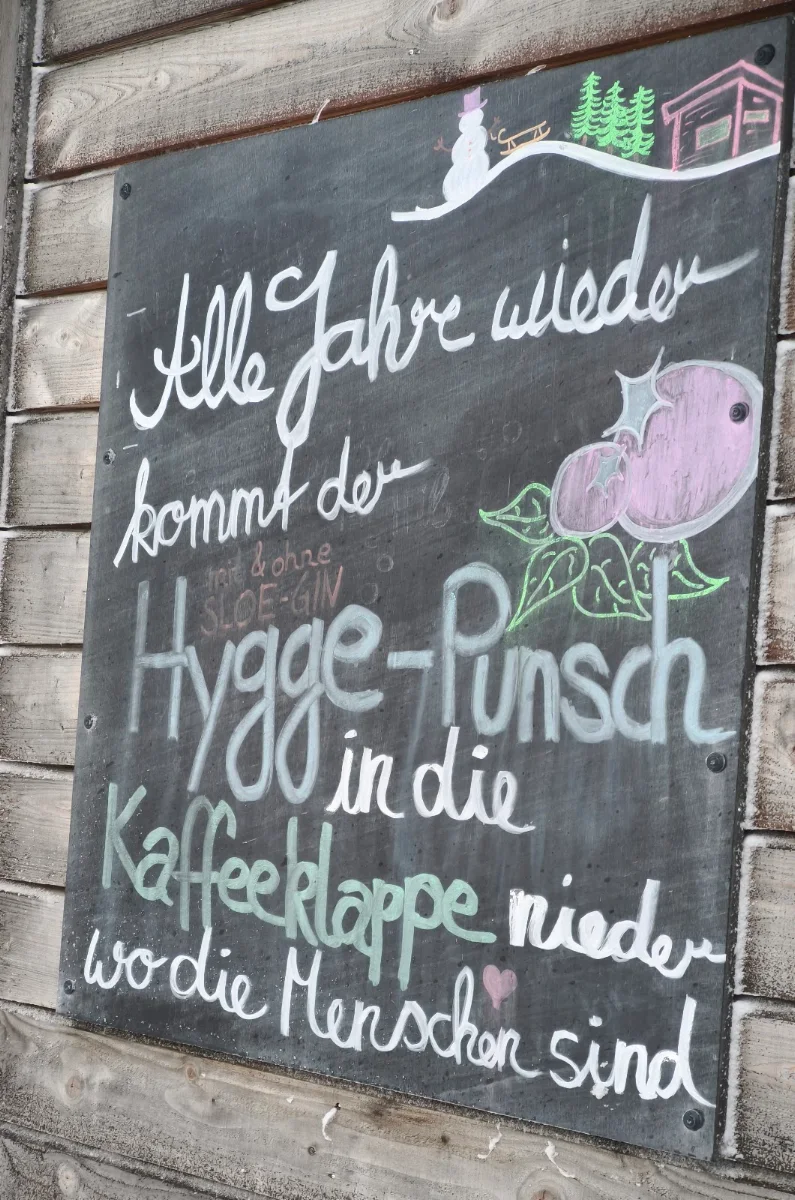 Alle Jahre wieder
kommt der
mit & ohne
SLOE-GIN
Hygge-Punsch
in die
Kaffeeklappe nieder
wo die Menschen sind